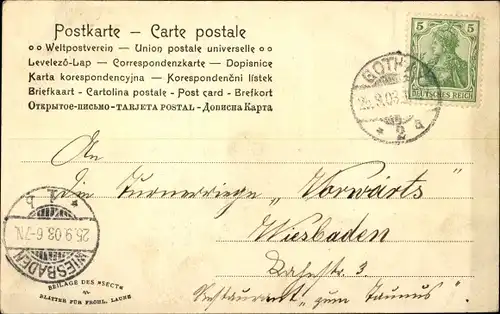 Postkarte — Carte postale
Weltpostverein — Union postale universelle
Levelező-Lap — Correspondenzkarte — Dopisnice
Karta korespondencyjna — Korespondenční lístek
Briefkaart - Cartolina postale - Post card - Brefkort
Открытое-письмо - TARJETA POSTAL - Дописна Карта
5 5
DEUTSCHES REICH
GOTHA
9.03.
* 2 a
An
die Turnerriege "Vorwärts"
Wiesbaden
3.
Restaurant "zum Taunus"
* 1 b
26.9.03.6-7N.
WIESBADEN
BEILAGE DES »SECT«
BLÄTTER FÜR FRÖHL. LAUNE